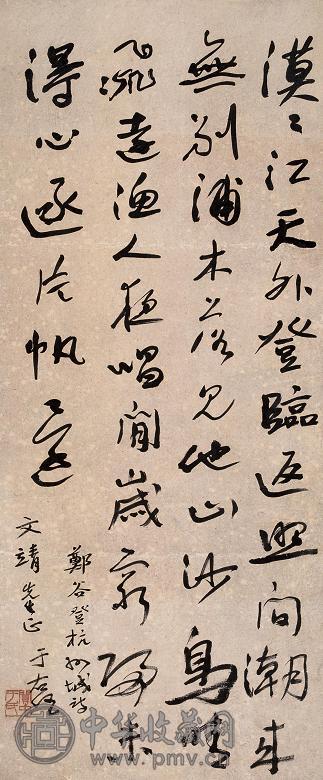 漠〻江天外登臨返照間潮來
無別浦木落見他山沙鳥晴
飛遠漁人夜唱閒歲窮歸未
得心逐片帆還
鄭谷登杭州城詩
文靖先生正 于右任
中华收藏网
www.pmv.cn